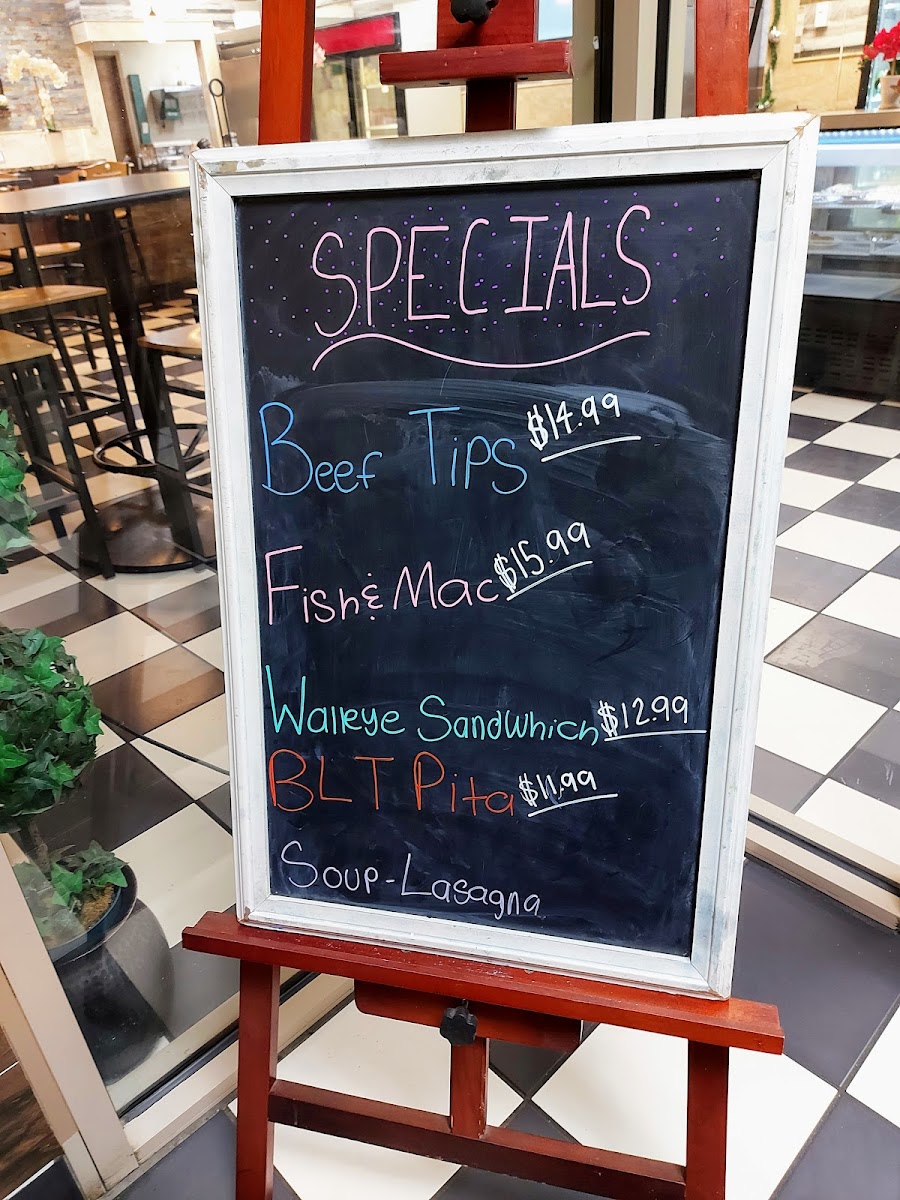 SPECIALS
Beef Tips $14.99
Fish & Mac $15.99
Walleye Sandwhich $12.99
BLT Pita $11.99
Soup-Lasagna